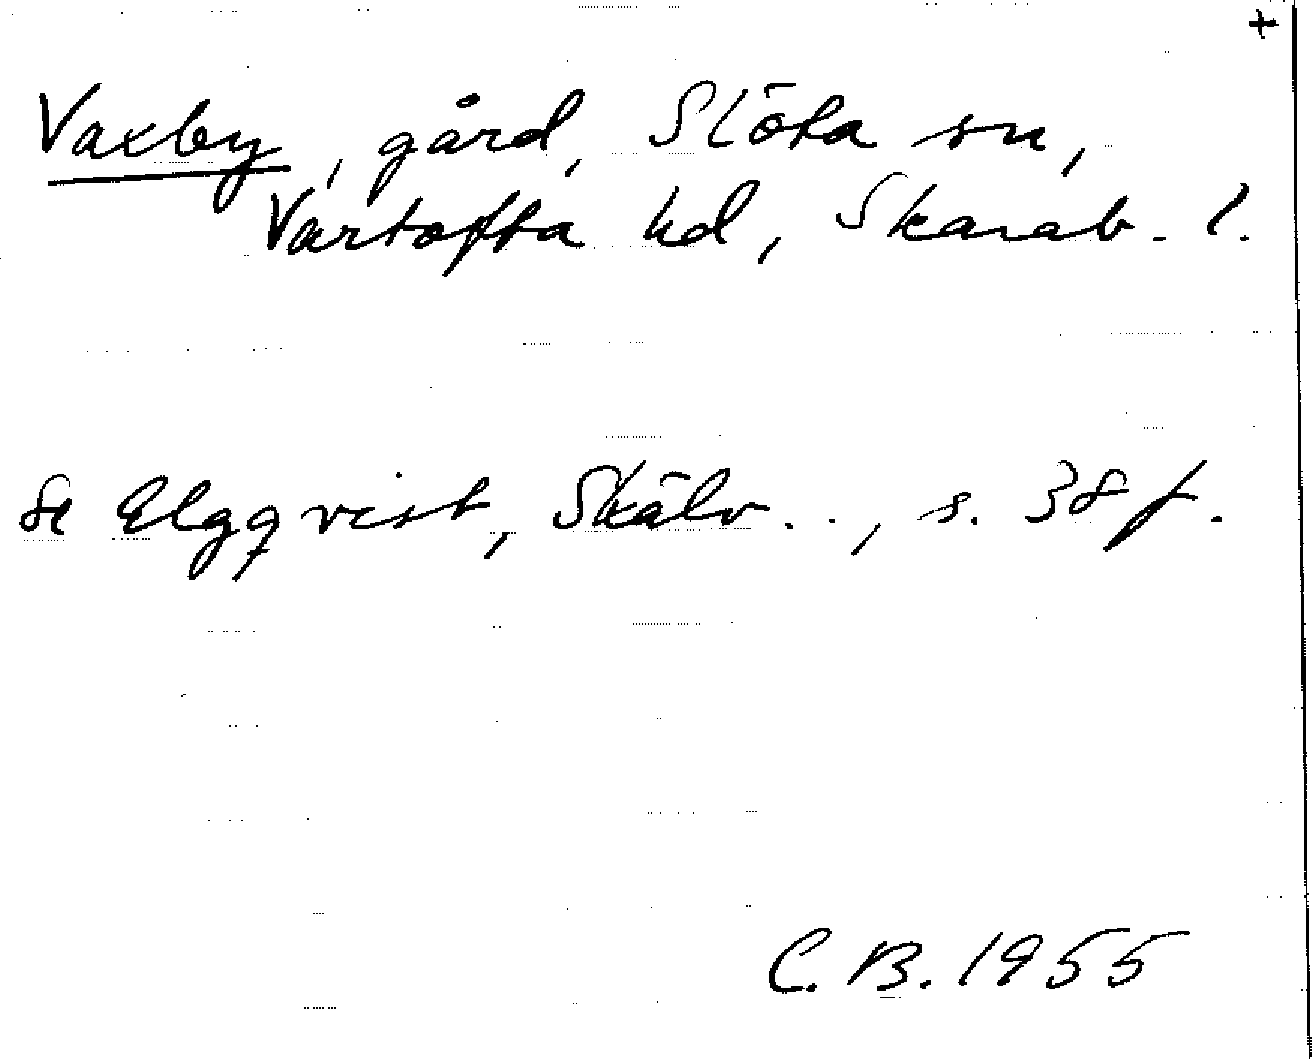 +
Vaxby, gård, Slöta sn,
Vartofta hd, Skarab. l.
Se Elgqvist, Skälv.., s. 38 f.
C.B. 1955